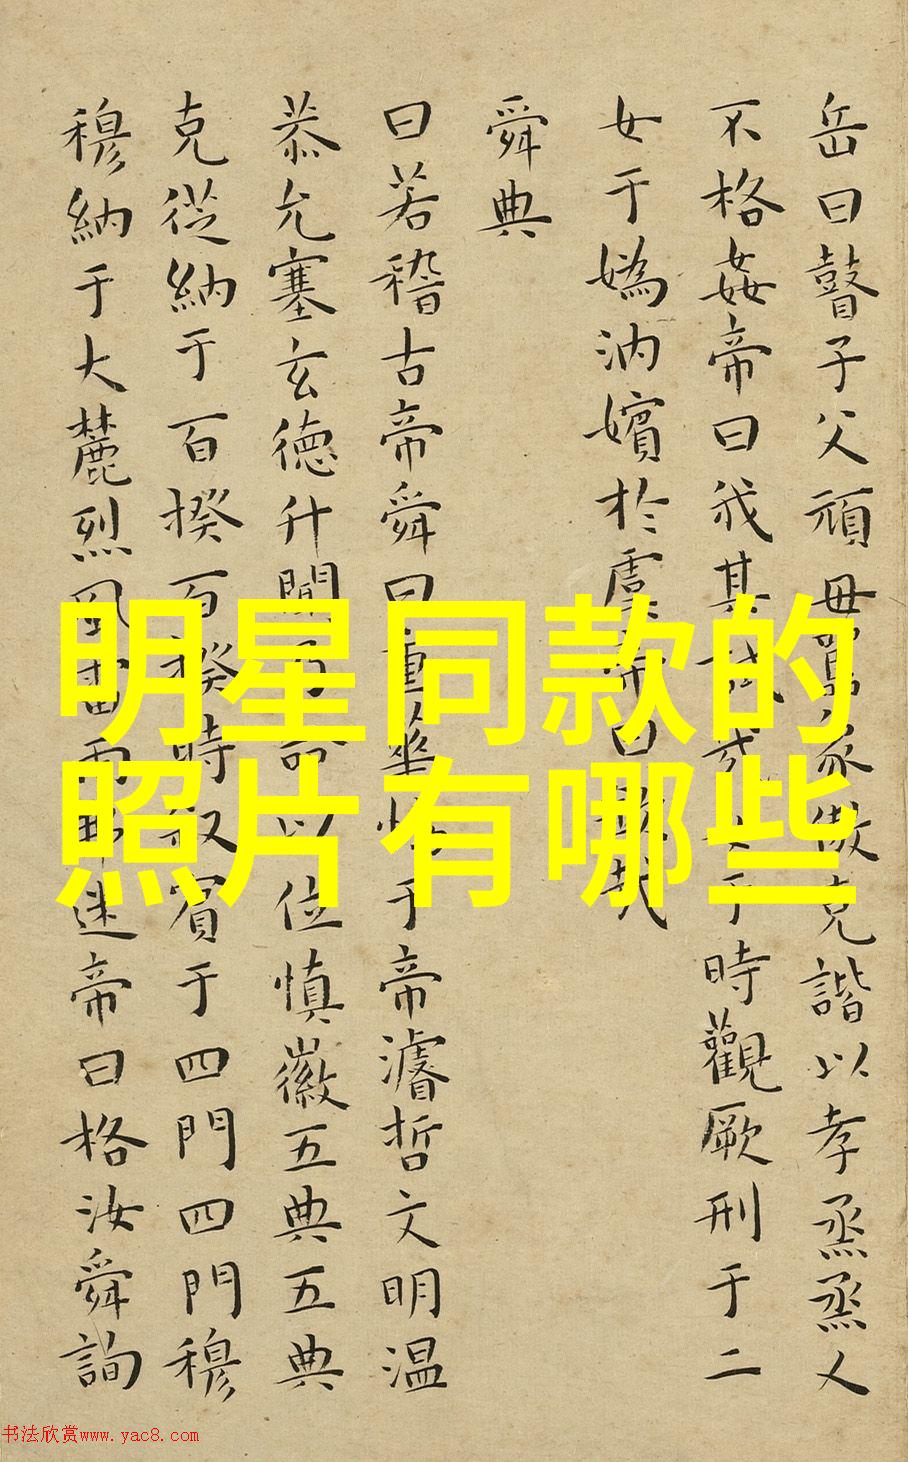 岳曰瞽子父頑毋嚚象傲克諧以孝烝烝乂
不格姦帝曰我其試哉女于時觀厥刑于二
女于媯汭嬪於虞帝曰欽哉
舜典
曰若稽古帝舜曰重華協于帝濬哲文明温
恭允塞玄德升聞乃命以位慎徽五典五典
克從納于百揆百揆時叙賓于四門四門穆
穆納于大麓烈風雷雨弗迷帝曰格汝舜詢
明星同款的
照片有哪些
书法欣赏www.yac8.com